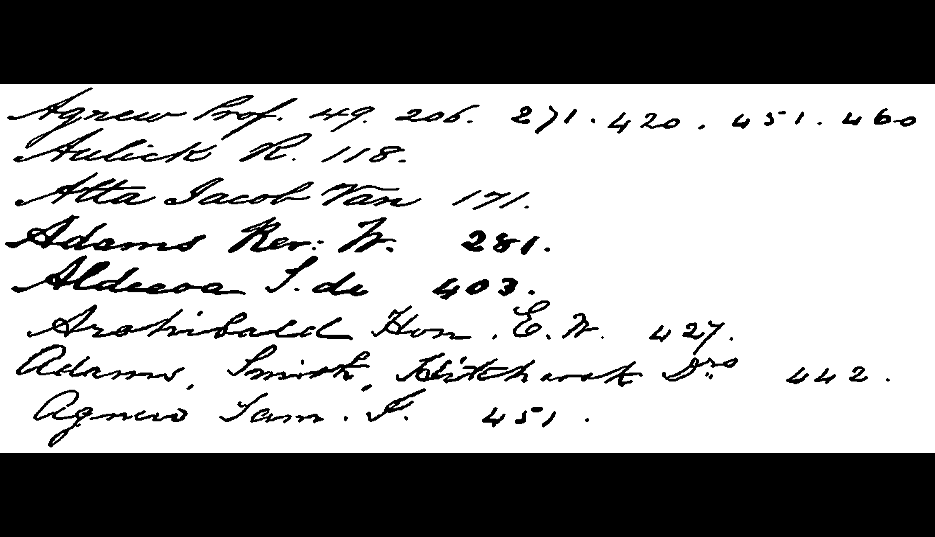 Agnew Prof. 49. 206. 271. 420. 451. 460
Aulick R. 118.
Alta Jacob Van 171.
Adams Rev: W. 281.
Aldecoa S. de 403.
Archibald Hon. E. W. 427.
Adams, Smith, Hitchcock Drs 442.
Agnew Sam. F. 451.